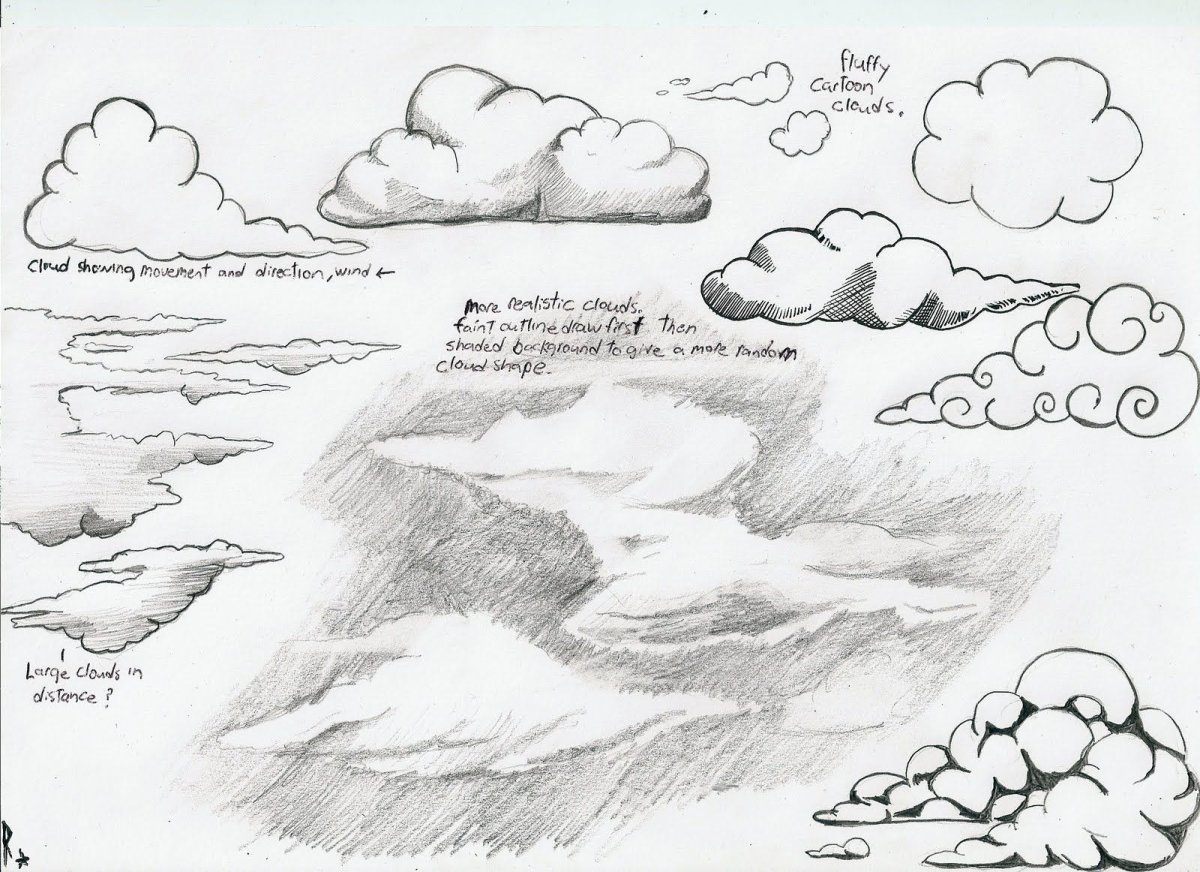 fluffy
cartoon
clouds.
Cloud showing movement and direction, wind ←
more realistic clouds.
faint outline draw first then
shaded background to give a more random
cloud shape.
Large clouds in
distance?
R